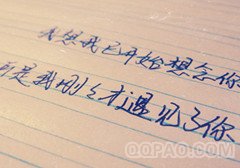 我想我已开始想念你
可是我刚刚才遇见了你
QQPAO.COM